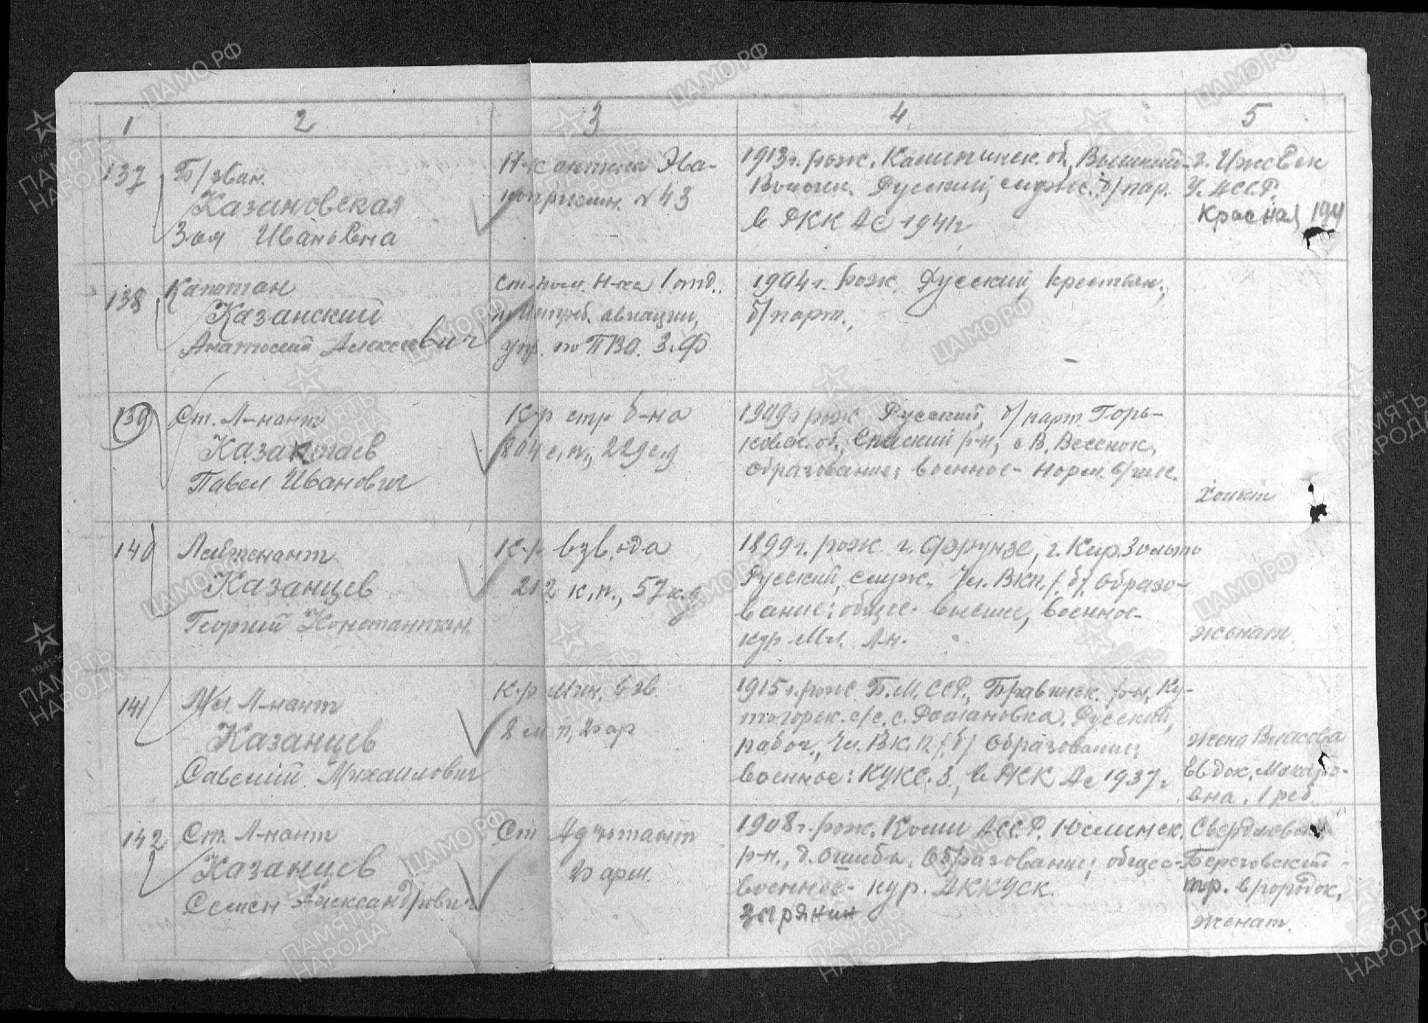 1 2 3 4 5
137 Б/зван.
Казановская
Зоя Ивановна
Н-к аптеки Эва-
коприемн. №43
1913 г. рож. Калининск. об, Вышний-
Волочек. Русский, служ. б/пар.
в РККА с 1941 г.
г. Ижевск
У. АССР.
Красная 194
138 Капитан
Казанский
Анатолий Алексеевич
Ст. пом. н-ка 1 отд.
авиации,
упр. по ПВО. З.Ф.
1904 г. рож. Русский, крестьян,
б/парт.,
139 Ст. Л-нант
Казакпаев
Павел Иванович
К-р стр б-на
804 с.п., 229 с.д
1909 г рож. Русский, б/парт. Горь-
ковск. об., Спасский р-н, с В.
Образование: военное- норм. в/уч.
Холост
140 Лейтенант
Казанцев
Георгий Константин.
К-р взвода
212 к.п., 57 к.д
1899 г. рож. г. Фрунзе,
Русский, служ. Чл. ВКП/б/, Образо-
вание: общее- высшее, военное-
кур Мл. Л-н.
женат.
141 Мл. Л-нант
Казанцев
Савелий Михаилович
К-р мин. взв.
1915 г. рож Б.М.ССР, Бравинск. р-н, Ку-
с/с, с. Романовка. Русский,
рабоч., Чл. ВКП/б/ Образование:
военное: КУКС. З., в РККА с 1937 г
жена Власова
Евдок. Макаро-
вна, 1 реб.
142 Ст. Л-нант
Казанцев
Семен Александрович
Ст Адъютант
1908 г. рож. Коми АССР. Юсьминск.
р-н., д. Ошиба. Образование: общее-
военное- кур. АККУСК.
Зырянин
Свердловск
Береговский
тр. в/городок,
женат.